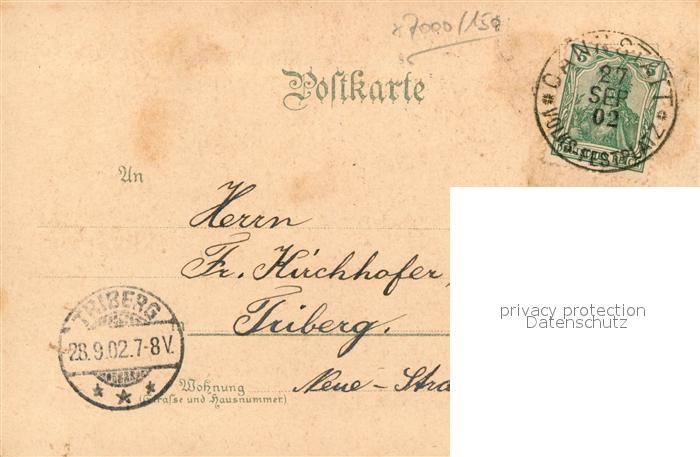 x7000/150
Postkarte
CANNSTATT
27
SEP
02
VOLKSFESTPLATZ
An
Herrn
Fr. Kirchhofer,
Triberg.
Neue-Stra
Wohnung
(Straße und Hausnummer)
TRIBERG
28.9.02.7-8V.
privacy protection
Datenschutz